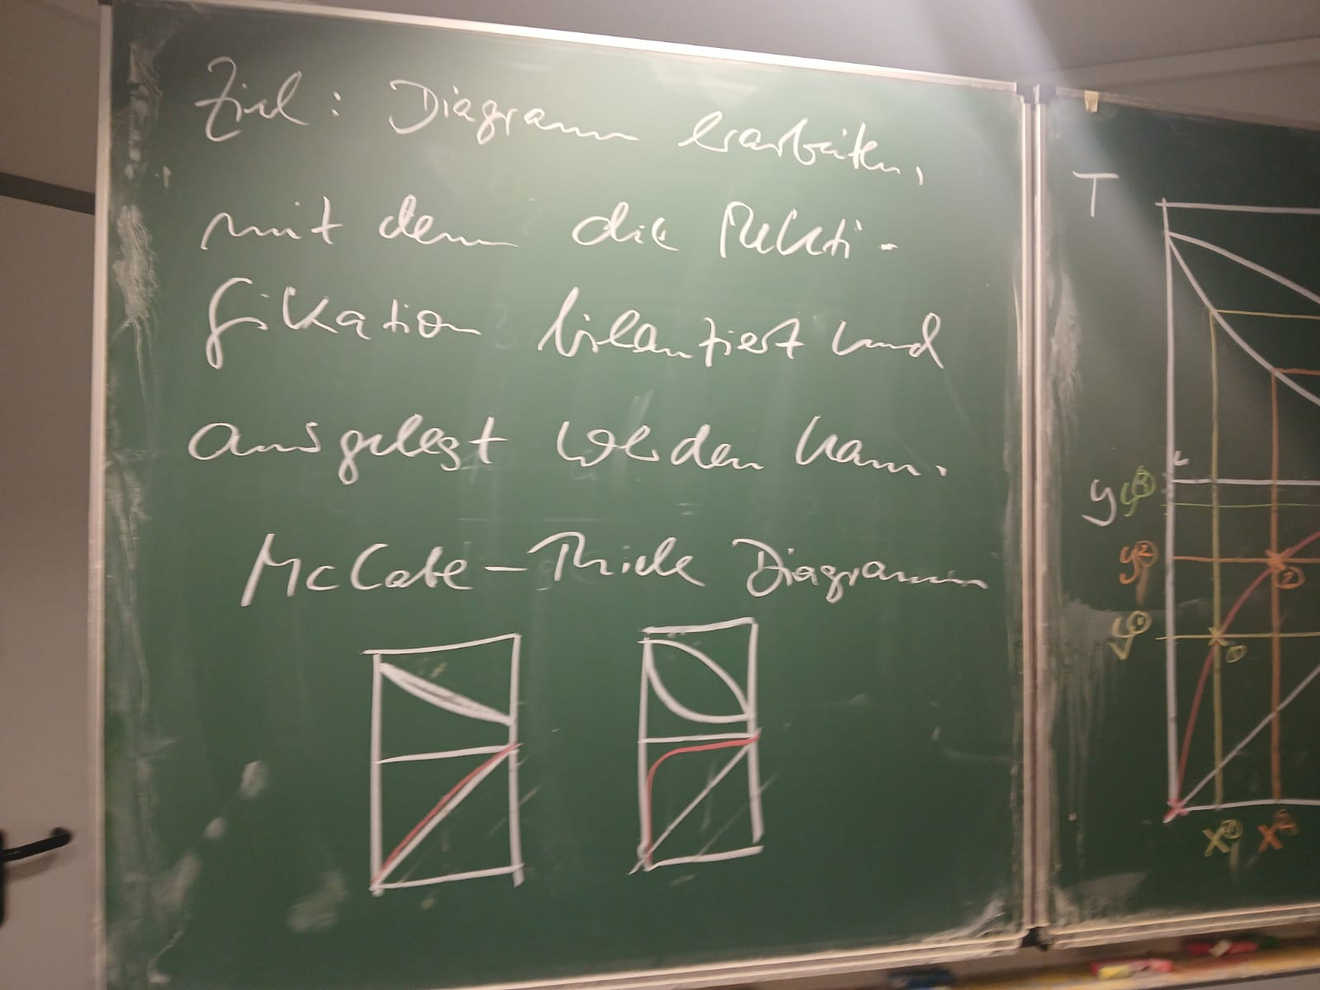 Ziel: Diagramm erarbeiten,
mit dem die Rekti-
fikation bilanziert und
ausgelegt werden kann.
McCabe-Thiele Diagramm
T
y y③
y②
②
y①
①
x① x②